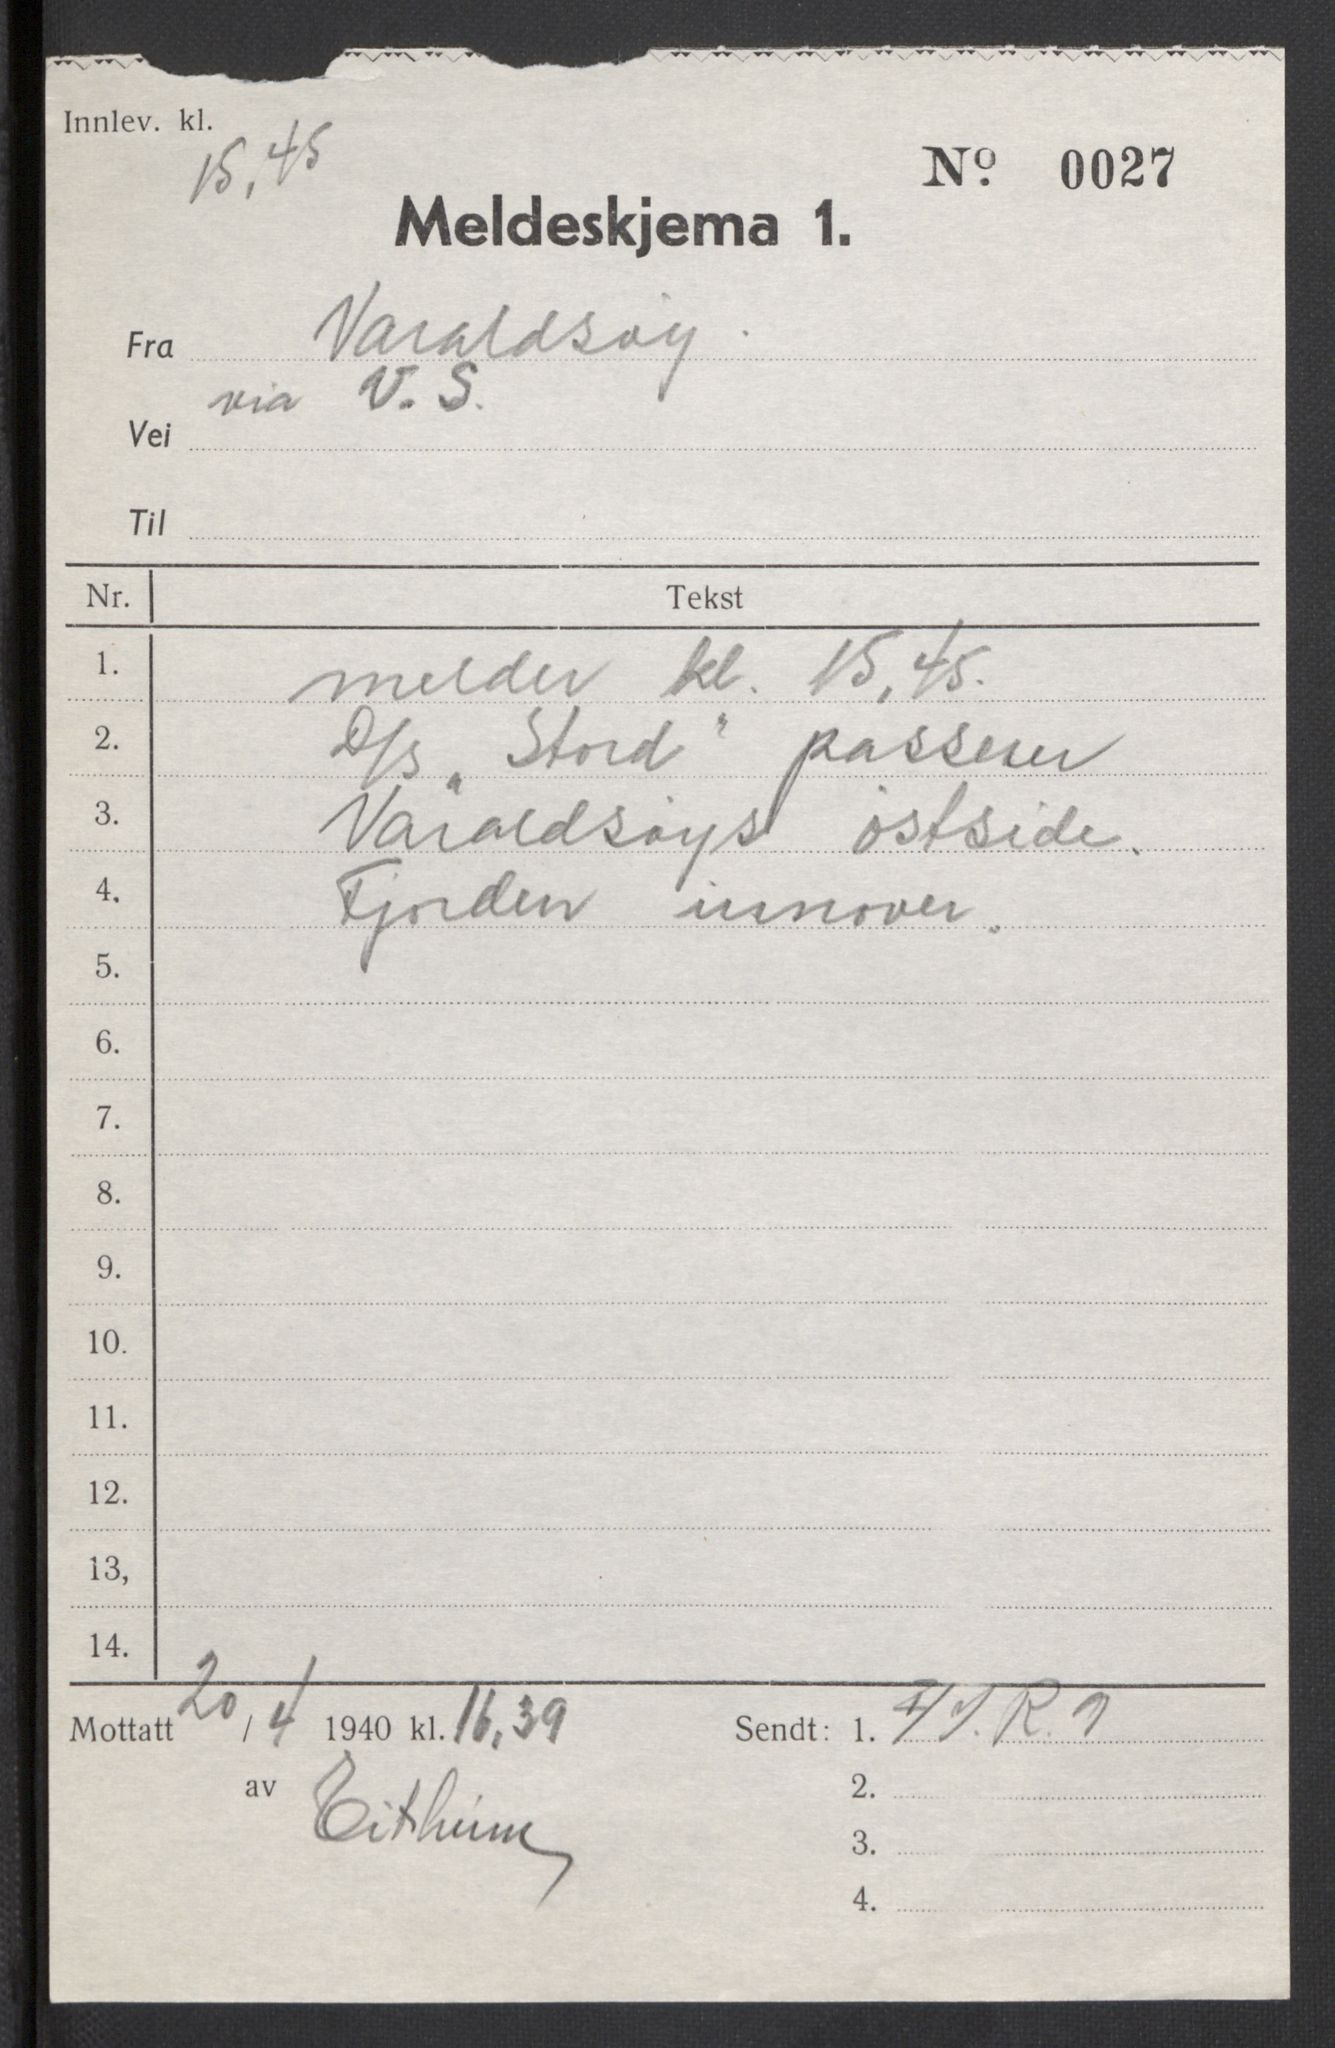 Innlev. kl.
15,45
Nº 0027
Meldeskjema 1.
Fra Varaldsøy.
via V. S.
Vei
Til
Nr. Tekst
1. melder kl. 15,45.
2. D/s „Stord" passerer
3. Varaldsøys østside.
4. Fjorden innover.
5.
6.
7.
8.
9.
10.
11.
12.
13,
14.
Mottatt 20/4 1940 kl. 16,39 Sendt: 1. R. 1
av Eitheim 2.
3.
4.